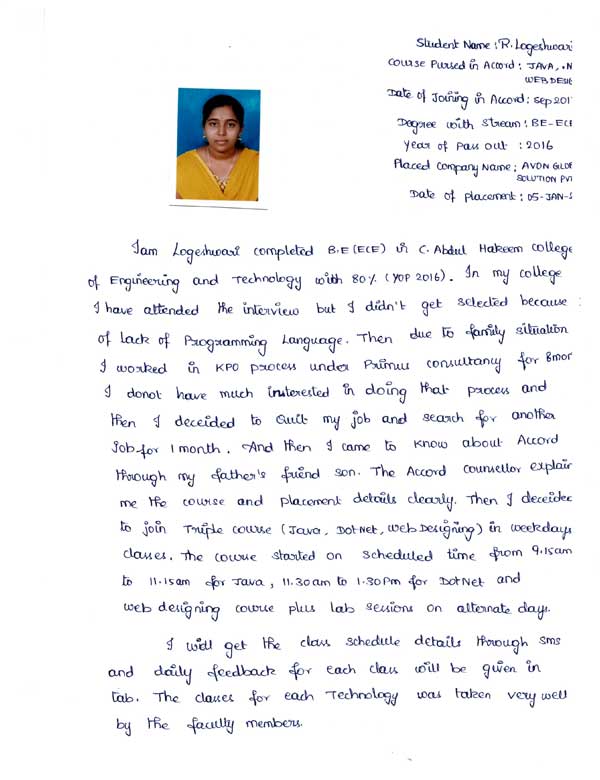 Student Name : R. Logeshwari
Course Pursed in Accord : JAVA, .N
WEB DESI
Date of Joining in Accord : Sep 201
Degree with Stream : BE-ECE
Year of Pass out : 2016
Placed Company Name : AVON GLOB
SOLUTION PVT
Date of placement : 05-JAN-
Iam Logeshwari completed B.E (ECE) in C. Abdul Hakeem college
of Engineering and Technology with 80% (YOP 2016). In my college
I have attended the interview but I didn't get selected because
of Lack of Programming Language. Then due to family situation
I worked in KPO process under Primus consultancy for 8mon
I donot have much insterested in doing that process and
then I deceided to Quit my job and search for another
Job for 1 month. And then I came to know about Accord
through my father's friend son. The Accord counsellor explain
me the course and placement details clearly. Then I deceided
to join Triple course (Java, DotNet, Web Designing) in weekdays
classes. The course started on scheduled time from 9.15am
to 11.15am for Java, 11.30am to 1.30Pm for DotNet and
web designing course plus lab sessions on alternate days.
I will get the class schedule details through sms
and daily feedback for each class will be given in
tab. The classes for each Technology was taken very well
by the faculty members.